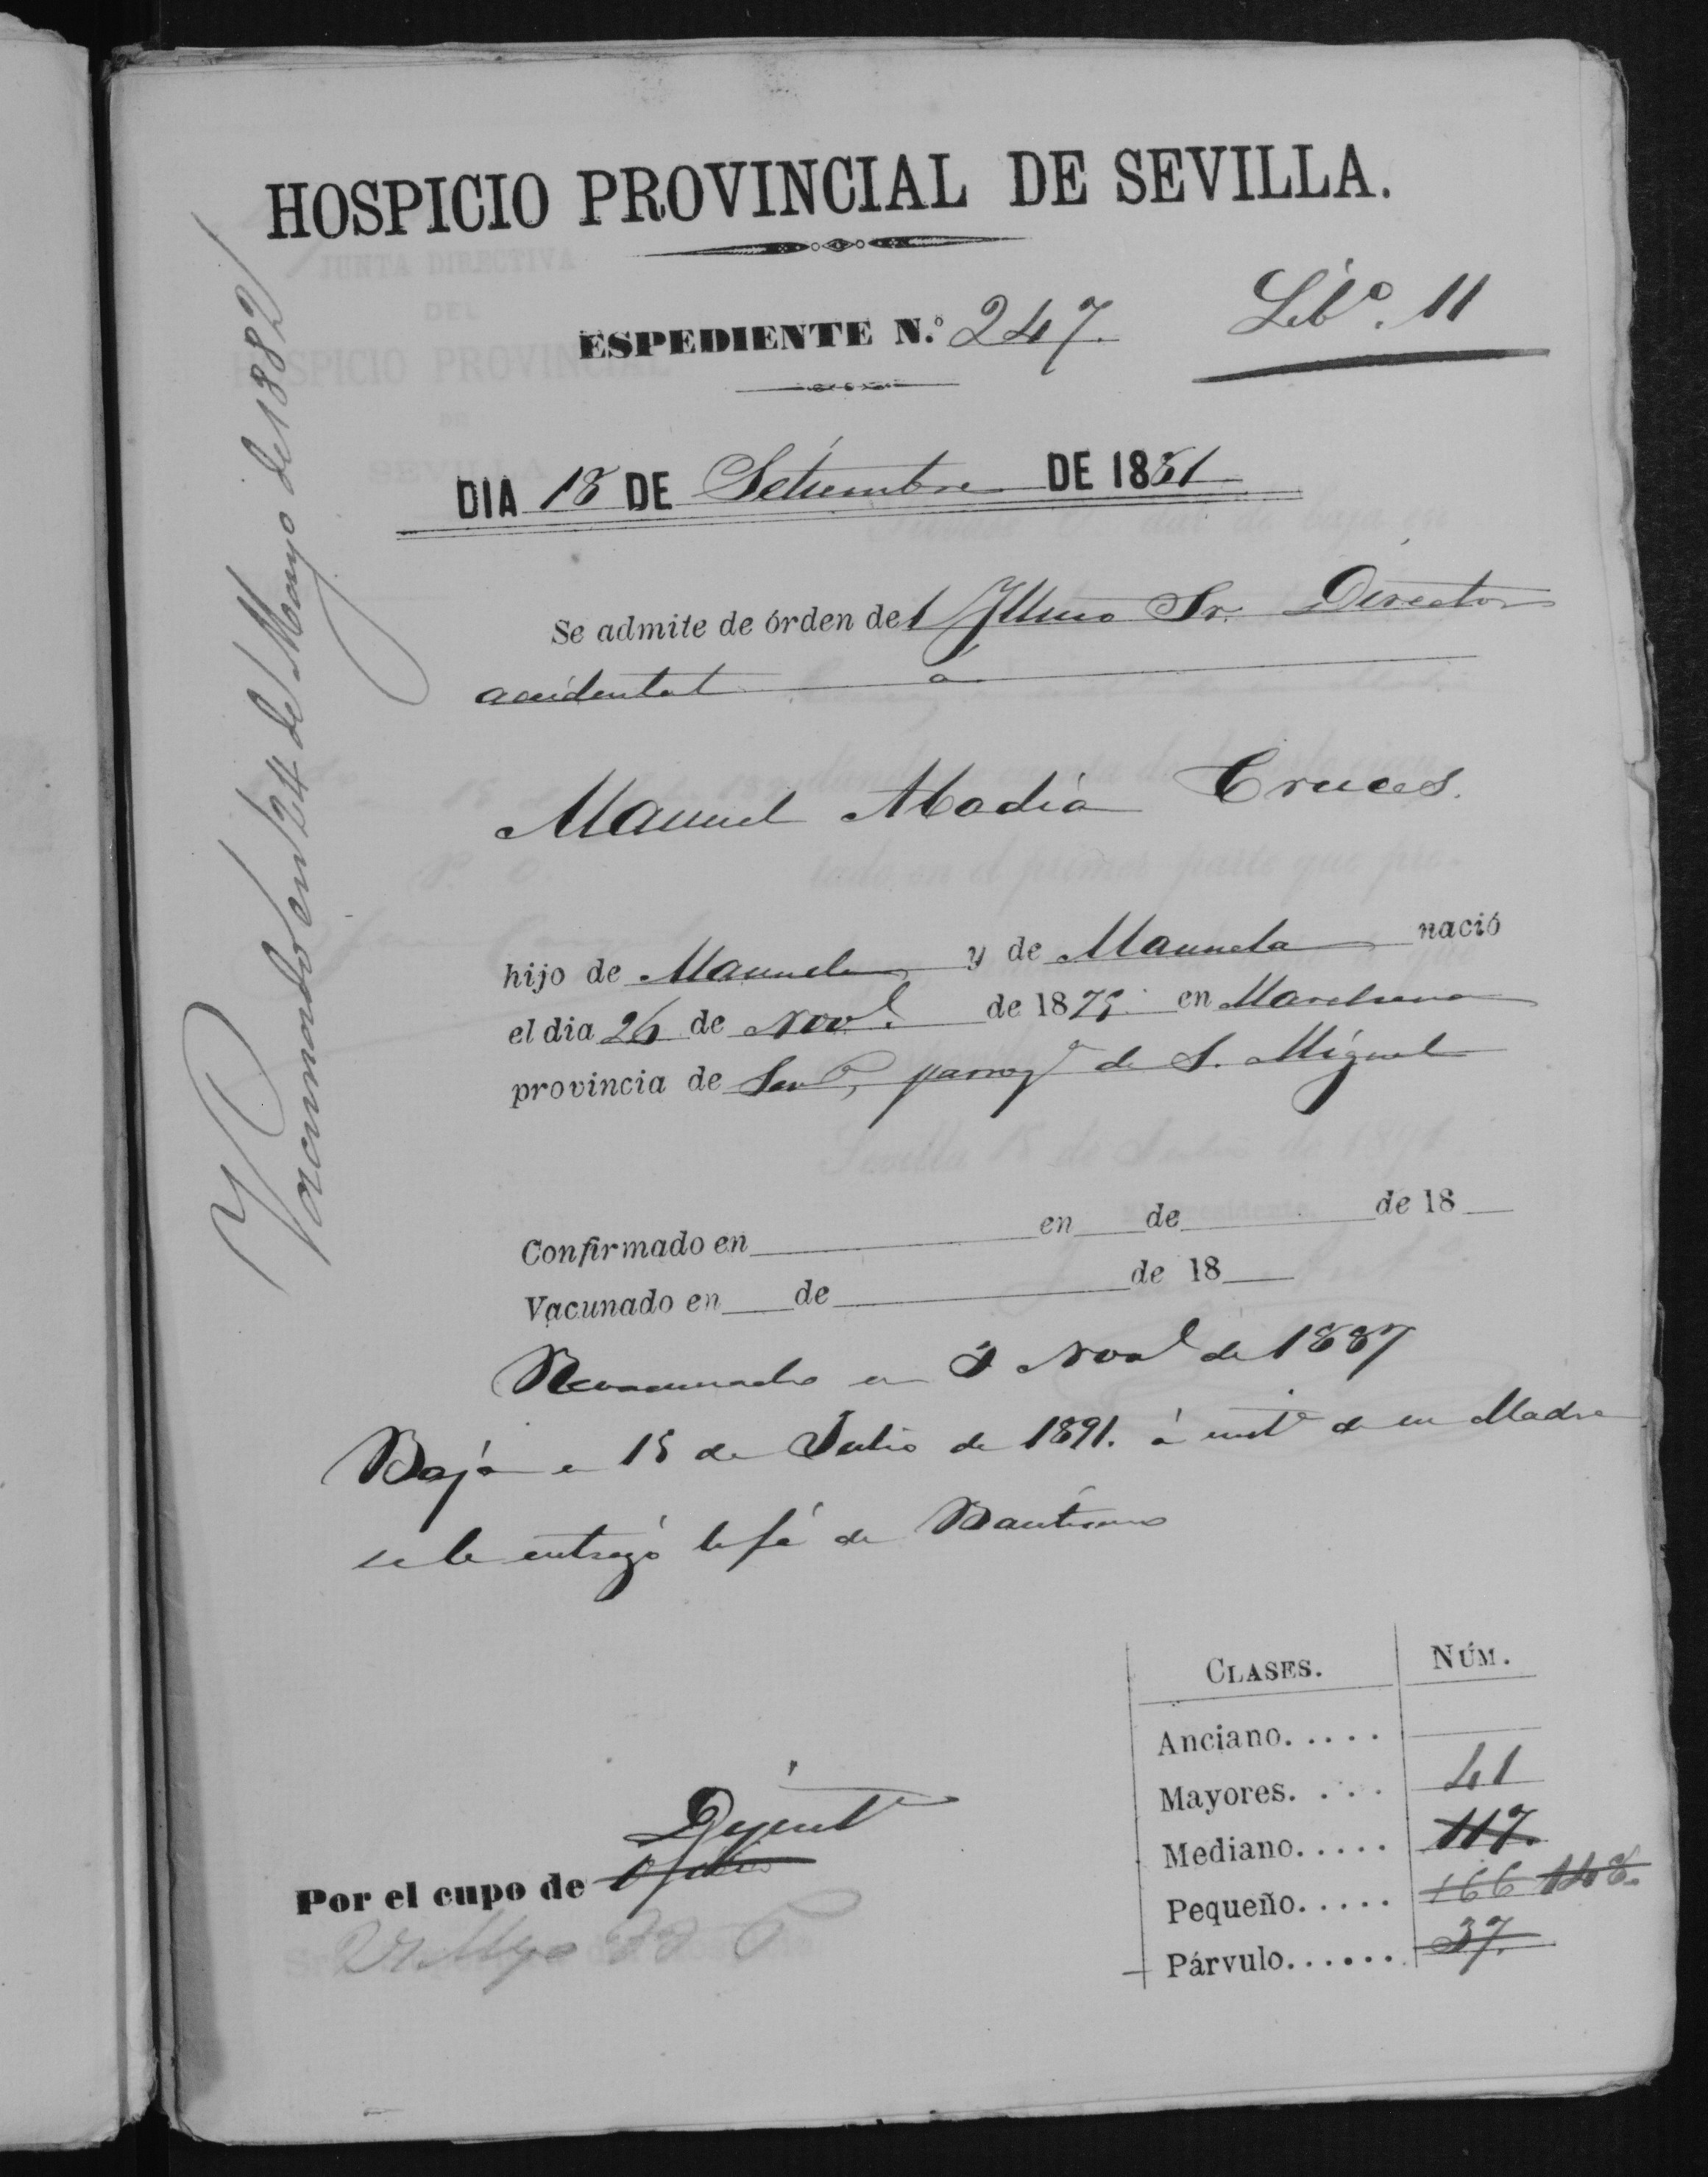 HOSPICIO PROVINCIAL DE SEVILLA.
ESPEDIENTE N.º 247.
Libº. 11
DIA 18 DE Setiembre DE 1881
Se admite de órden del Illmo Sr. Director
accidental a
Manuel Abadía Cruces.
hijo de Manuel y de Manuela nació
el dia 26 de Novᵉ de 187 en Marchena
provincia de Sevª, parroqª de S. Miguel
Confirmado en en de de 18
Vacunado en de de 18
Revacunado en 3 Novᵉ de 1887
Baja en 15 de Julio de 1891. á instª de su Madre
se le entregó la fé de Bautismo
Vacunado en 24 de Mayo de 1882
CLASES. NÚM.
Anciano.....
Mayores.... 41
Mediano..... 117.
Pequeño..... 166 148.
Párvulo...... 37.
Por el cupo de